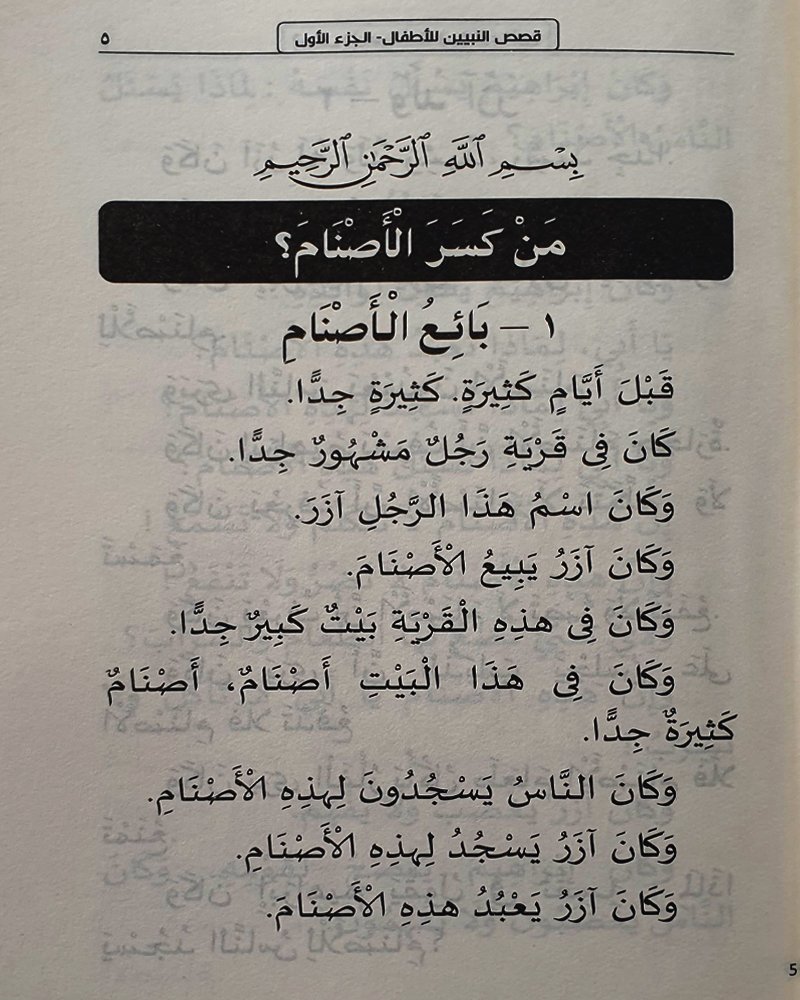 قصص النبيين للأطفال- الجزء الأول
٥
بِسْمِ ٱللَّهِ ٱلرَّحْمَٰنِ ٱلرَّحِيمِ
مَنْ كَسَرَ الْأَصْنَامَ؟
١ – بَائِعُ الْأَصْنَامِ
قَبْلَ أَيَّامٍ كَثِيرَةٍ. كَثِيرَةٍ جِدًّا.
كَانَ فِى قَرْيَةِ رَجُلٌ مَشْهُورٌ جِدًّا.
وَكَانَ اسْمُ هَذَا الرَّجُلِ آزَرَ.
وَكَانَ آزَرُ يَبِيعُ الْأَصْنَامَ.
وَكَانَ فِى هذِهِ الْقَرْيَةِ بَيْتٌ كَبِيرٌ جِدًّا.
وَكَانَ فِى هَذَا الْبَيْتِ أَصْنَامٌ، أَصْنَامٌ
كَثِيرَةٌ جِدًّا.
وَكَانَ النَّاسُ يَسْجُدُونَ لِهذِهِ الْأَصْنَامِ.
وَكَانَ آزَرُ يَسْجُدُ لِهذِهِ الْأَصْنَامِ.
وَكَانَ آزَرُ يَعْبُدُ هذِهِ الْأَصْنَامَ.
5